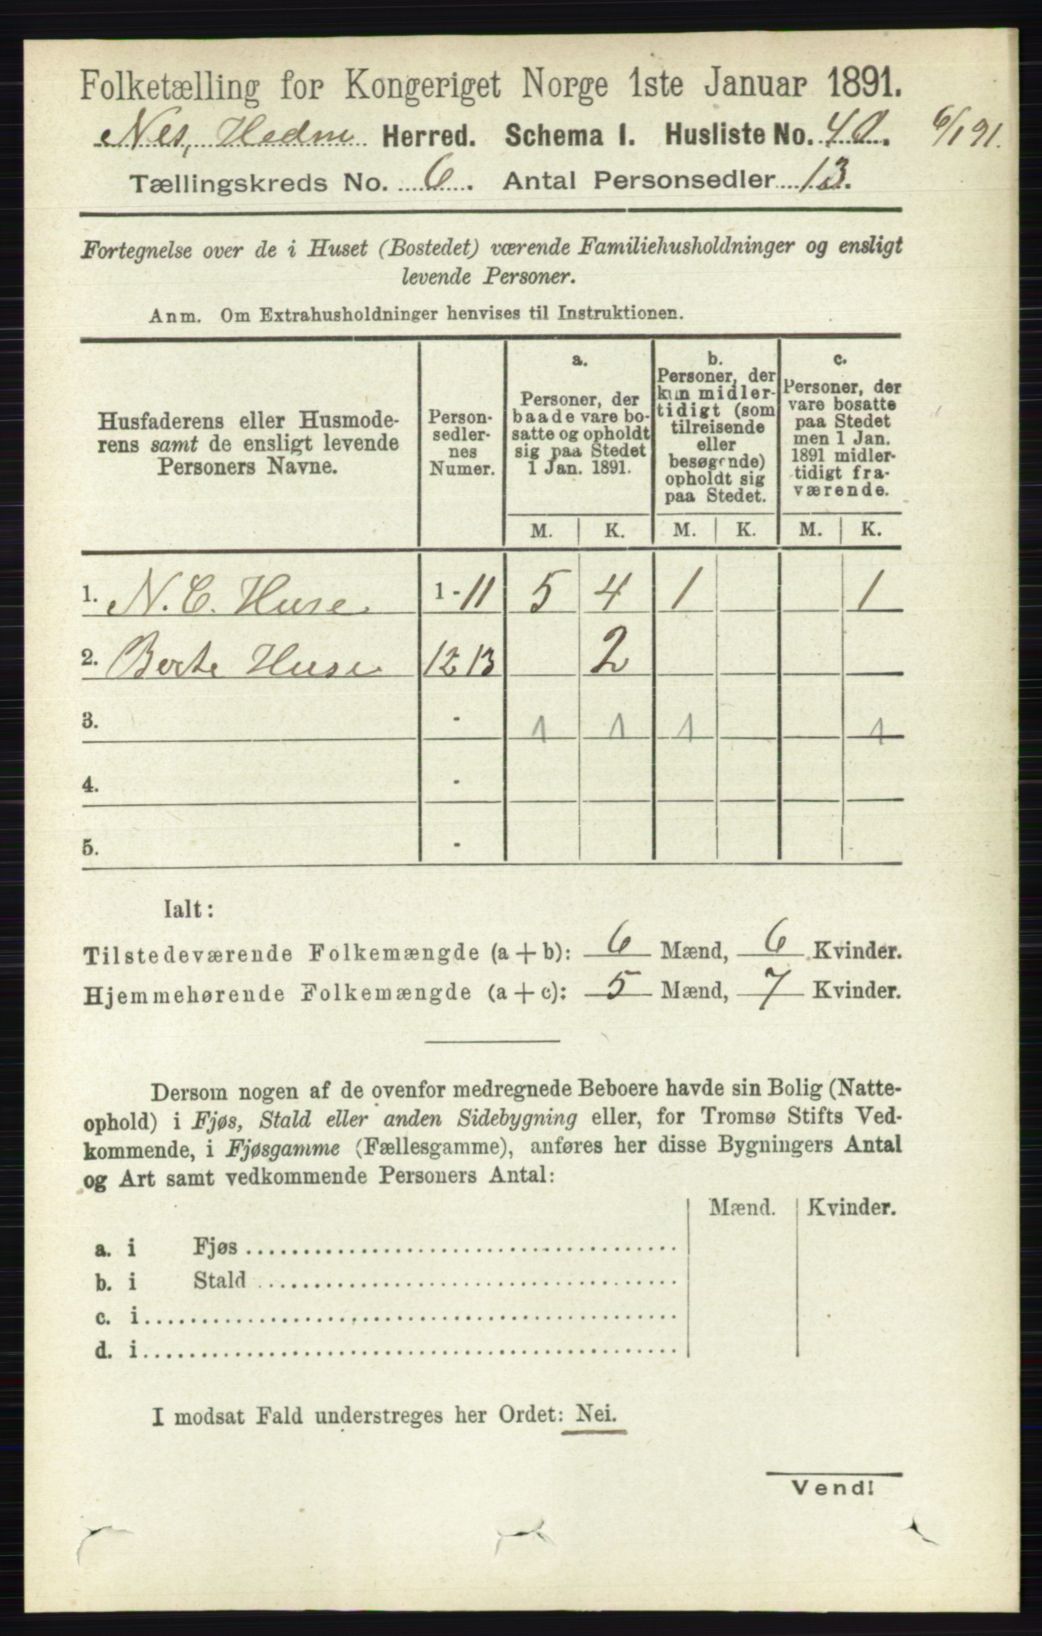 Folketælling for Kongeriget Norge 1ste Januar 1891.
Nes, Hedm Herred. Schema I. Husliste No. 40. 6/1 91.
Tællingskreds No. 6. Antal Personsedler 13.
Fortegnelse over de i Huset (Bostedet) værende Familiehusholdninger og ensligt
levende Personer.
Anm. Om Extrahusholdninger henvises til Instruktionen.
Husfaderens eller Husmode-
rens samt de ensligt levende
Personers Navne.
Person-
sedler-
nes
Numer.
a.
Personer, der
baade vare bo-
satte og opholdt
sig paa Stedet
1 Jan. 1891.
b.
Personer, der
kun midler-
tidigt (som
tilreisende
eller
besøgende)
opholdt sig
paa Stedet.
c.
Personer, der
vare bosatte
paa Stedet
men 1 Jan.
1891 midler-
tidigt fra-
værende.
M. K. M. K. M. K.
1. N. C. Huse 1-11 5 4 1 1
2. Berte Huse 12 13 2
3. - 1 1 1 1
4. -
5. -
Ialt:
Tilstedeværende Folkemængde (a + b): 6 Mænd, 6 Kvinder.
Hjemmehørende Folkemængde (a + c): 5 Mænd, 7 Kvinder.
Dersom nogen af de ovenfor medregnede Beboere havde sin Bolig (Natte-
ophold) i Fjøs, Stald eller anden Sidebygning eller, for Tromsø Stifts Ved-
kommende, i Fjøsgamme (Fællesgamme), anføres her disse Bygningers Antal
og Art samt vedkommende Personers Antal:
Mænd. Kvinder.
a. i Fjøs
b. i Stald
c. i
d. i
I modsat Fald understreges her Ordet: Nei.
Vend!